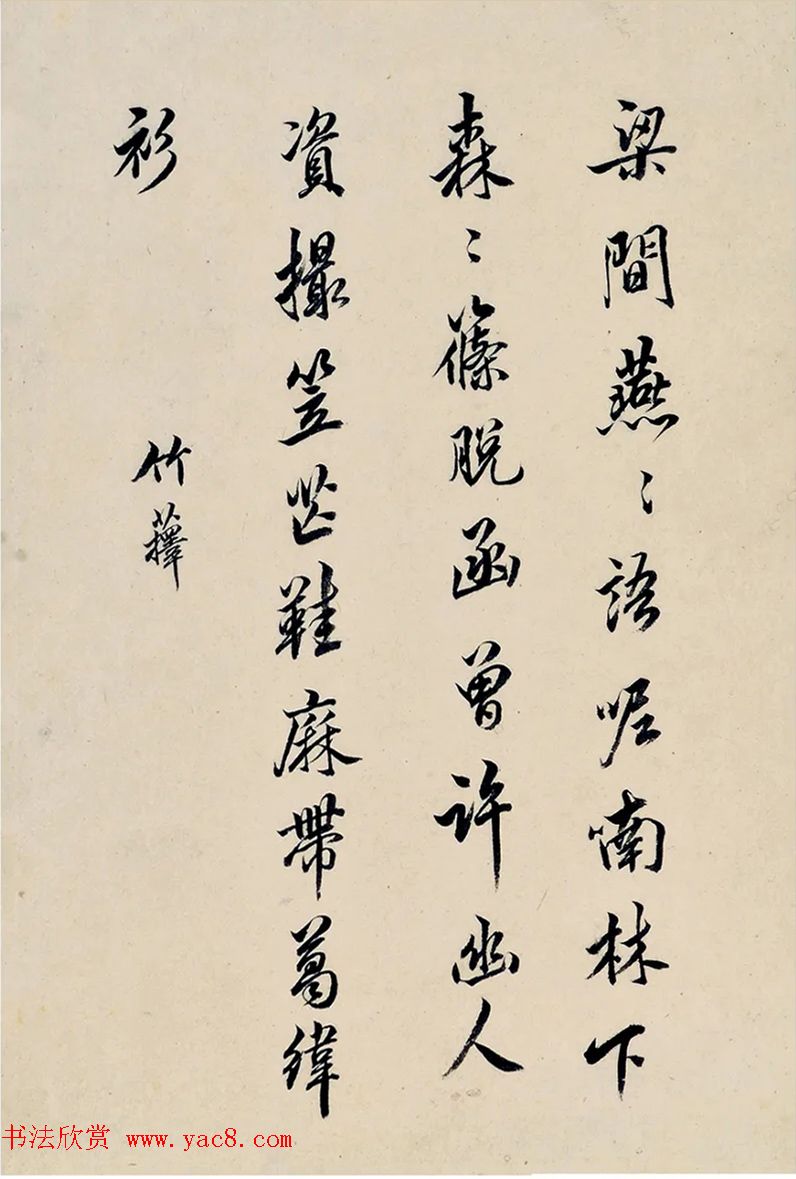 梁間燕〻語呢喃林下
森〻篠脱函曾許幽人
資撮笠芒鞋麻帶葛緯
衫
竹蘀
书法欣赏 www.yac8.com